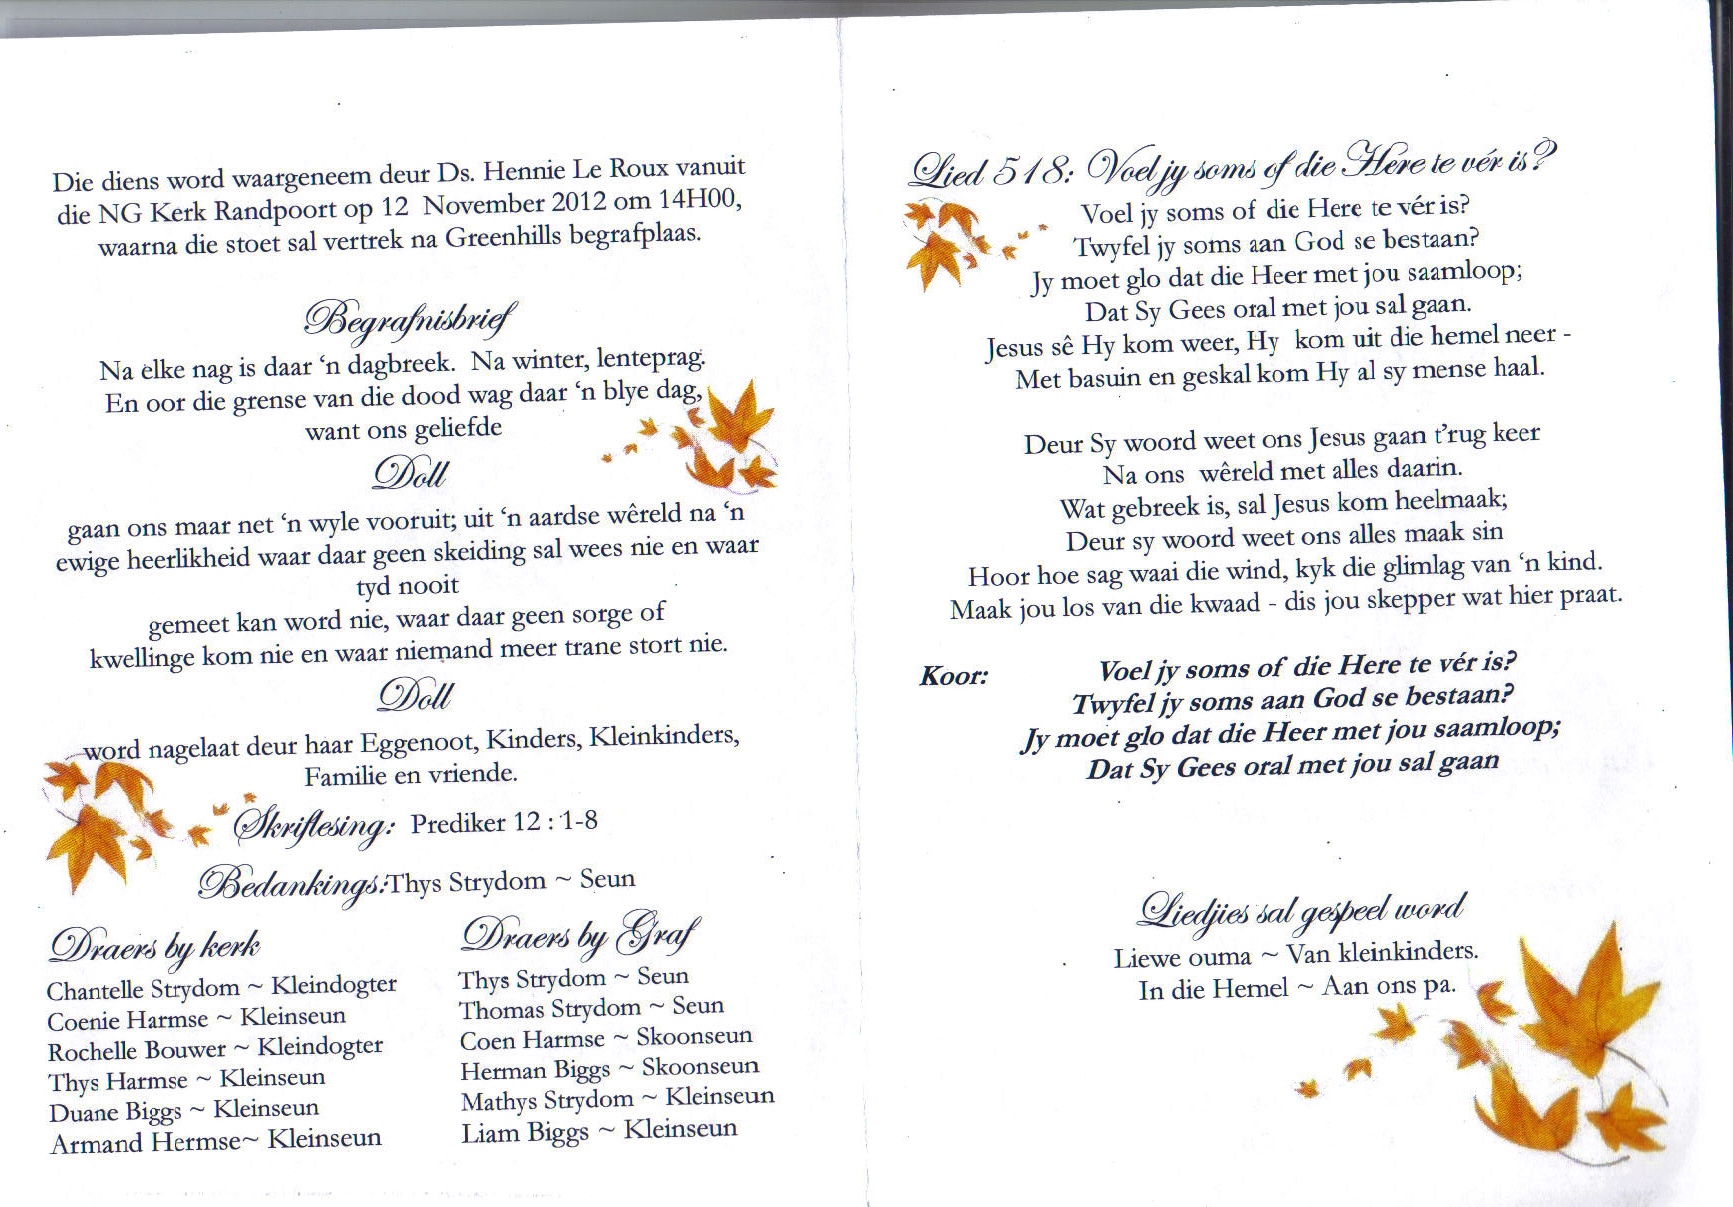 Die diens word waargeneem deur Ds. Hennie Le Roux vanuit
die NG Kerk Randpoort op 12 November 2012 om 14H00,
waarna die stoet sal vertrek na Greenhills begrafplaas.
Begrafnisbrief
Na elke nag is daar ‘n dagbreek. Na winter, lenteprag.
En oor die grense van die dood wag daar ‘n blye dag,
want ons geliefde
Doll
gaan ons maar net ‘n wyle vooruit; uit ‘n aardse wêreld na ‘n
ewige heerlikheid waar daar geen skeiding sal wees nie en waar
tyd nooit
gemeet kan word nie, waar daar geen sorge of
kwellinge kom nie en waar niemand meer trane stort nie.
Doll
word nagelaat deur haar Eggenoot, Kinders, Kleinkinders,
Familie en vriende.
Skriflesing: Prediker 12 : 1-8
Bedankings:Thys Strydom ~ Seun
Draers by kerk
Chantelle Strydom ~ Kleindogter
Coenie Harmse ~ Kleinseun
Rochelle Bouwer ~ Kleindogter
Thys Harmse ~ Kleinseun
Duane Biggs ~ Kleinseun
Armand Hermse~ Kleinseun
Draers by Graf
Thys Strydom ~ Seun
Thomas Strydom ~ Seun
Coen Harmse ~ Skoonseun
Herman Biggs ~ Skoonseun
Mathys Strydom ~ Kleinseun
Liam Biggs ~ Kleinseun
Lied 518: Voel jy soms of die Here te vér is?
Voel jy soms of die Here te vér is?
Twyfel jy soms aan God se bestaan?
Jy moet glo dat die Heer met jou saamloop;
Dat Sy Gees oral met jou sal gaan.
Jesus sê Hy kom weer, Hy kom uit die hemel neer -
Met basuin en geskal kom Hy al sy mense haal.
Deur Sy woord weet ons Jesus gaan t’rug keer
Na ons wêreld met alles daarin.
Wat gebreek is, sal Jesus kom heelmaak;
Deur sy woord weet ons alles maak sin
Hoor hoe sag waai die wind, kyk die glimlag van ‘n kind.
Maak jou los van die kwaad - dis jou skepper wat hier praat.
Koor: Voel jy soms of die Here te vér is?
Twyfel jy soms aan God se bestaan?
Jy moet glo dat die Heer met jou saamloop;
Dat Sy Gees oral met jou sal gaan
Liedjies sal gespeel word
Liewe ouma ~ Van kleinkinders.
In die Hemel ~ Aan ons pa.